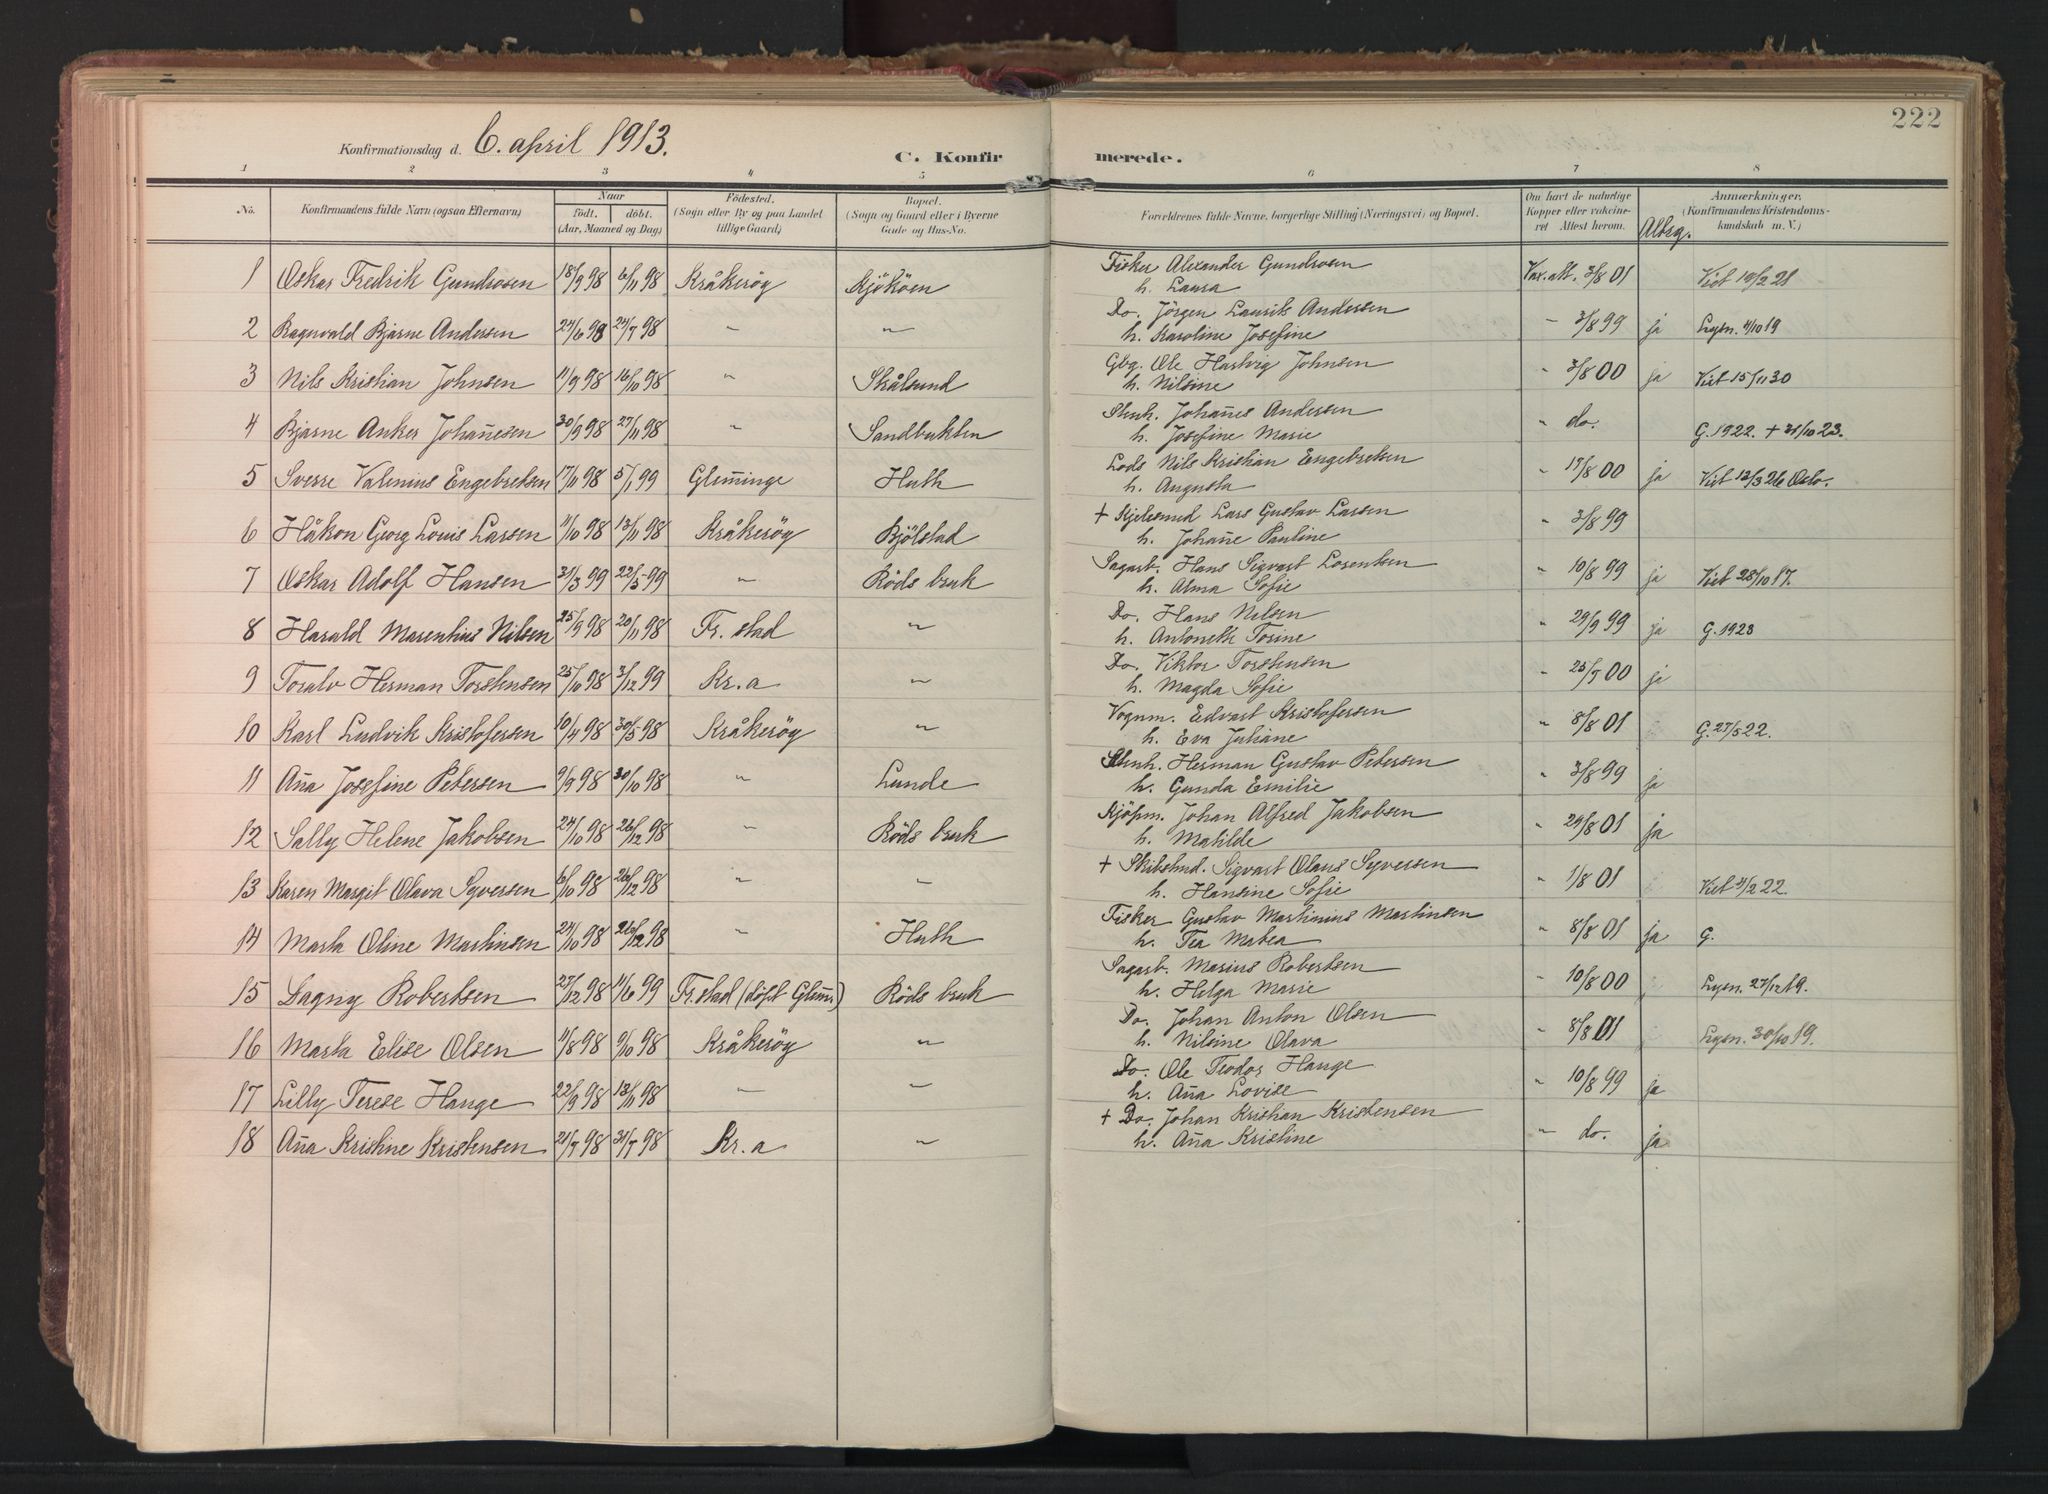 222
Konfirmationsdag d. 6. april 1913.
C. Konfirmerede.
1 2 3 4 5 6 7 8
No. Konfirmandens fulde Navn (ogsaa Efternavn) Naar födt. döbt. (Aar, Maaned og Dag) Födested. (Sogn eller By og paa Landet tillige Gaard) Bopæl. (Sogn og Gaard eller i Byerne Gade og Hus-No. Forældrenes fulde Navne, borgerlige Stilling (Næringsvei) og Bopæl. Om havt de naturlige Kopper eller vakcineret Attest herom. Altrg. Anmærkninger. (Konfirmandens Kristendomskundskab m. V.)
1 Oskar Fredrik Gundrosen 18/9 98 6/11 98 Kråkeröy Kjököen Fisker Alexander Gundrosen Vax.att. 3/8 01 Viet 19/2 21
h. Laura
2 Ragnvald Bjarne Andersen 24/6 98 24/7 98 " " Do. Jörgen Laurits Andersen " 3/8 99 ja Lysn. 4/10 19
h. Karoline Josefine
3 Nils Kristian Johnsen 11/9 98 16/10 98 " Skålsund Gbg. Ole Hartvig Johnsen " 3/8 00 ja Viet 15/11 30
h. Nilsine
4 Bjarne Anker Johan̄esen 30/9 98 27/11 98 " Sandbukten Stenh. Johan̄es Andersen " do. G. 1922. + 31/10 23.
h. Josefine Marie
5 Sverre Valenius Engebretsen 17/11 98 5/1 99 Glem̄inge Huth Lods Nils Kristian Engebretsen " 17/8 00 ja Viet 12/3 26 Oslo.
h. Augusta
6 Håkon Georg Louis Larsen 11/10 98 13/11 98 Kråkeröy Bjölstad + Kjelsmed Lars Gustav Larsen " 3/8 99
h. Johan̄e Pauline
7 Oskar Adolf Hansen 31/3 99 22/5 99 " Röds bruk Sagarb. Hans Sigvart Lorentsen " 10/8 99 ja Viet 28/10 17.
h. Alma Sofie
8 Harald Marentius Nilsen 25/9 98 20/11 98 Fr. stad " Do. Hans Nilsen " 29/9 99 ja G. 1923
h. Antonette Torine
9 Toralv Herman Torstensen 25/10 98 3/12 99 Kr.a " Do. Viktor Torstensen " 25/7 00 ja
h. Magda Sofie
10 Karl Ludvik Kristofersen 10/4 98 30/5 98 Kråkeröy " Vognm. Edvart Kristofersen " 8/8 01 G. 27/5 22.
h. Eva Juliane
11 An̄a Josefine Petersen 9/9 98 30/10 98 " Lunde Stenh. Herman Gustav Petersen " 3/8 99 ja
h. Gunda Emilie
12 Sally Helene Jakobsen 24/10 98 26/12 98 " Röds bruk Kjöpm. Johan Alfred Jakobsen " 29/8 01 ja
h. Matilde
13 Karen Margit Olava Syversen 6/10 98 26/12 98 " " + Skibstmd. Sigvart Olaus Syversen " 1/8 01 Viet 4/2 22.
h. Hansine Sofie
14 Marta Oline Martinsen 24/10 98 26/12 98 " Huth Fisker Gustav Martinius Martinsen " 8/8 01 ja G.
h. Tea Matea
15 Dagny Robertsen 27/12 98 11/6 99 Fr. stad (döpt Glem̄.) Röds bruk Sagarb. Marius Robertsen " 10/8 00 Lysn. 27/12 19.
h. Helga Marie
16 Marta Elise Olsen 11/8 98 9/10 98 Kråkeröy " Do. Johan Anton Olsen " 8/8 01 Lysn. 30/10 19.
h. Nilsine Olava
17 Lilly Terese Hauge 22/9 98 13/11 98 " " Do. Ole Teodor Hauge " 10/8 99 ja
h. An̄a Lovise
18 An̄a Kristine Kristensen 21/7 98 31/7 98 Kr.a " + Do. Johan Kristian Kristensen " do. ja
h. An̄a Kristine